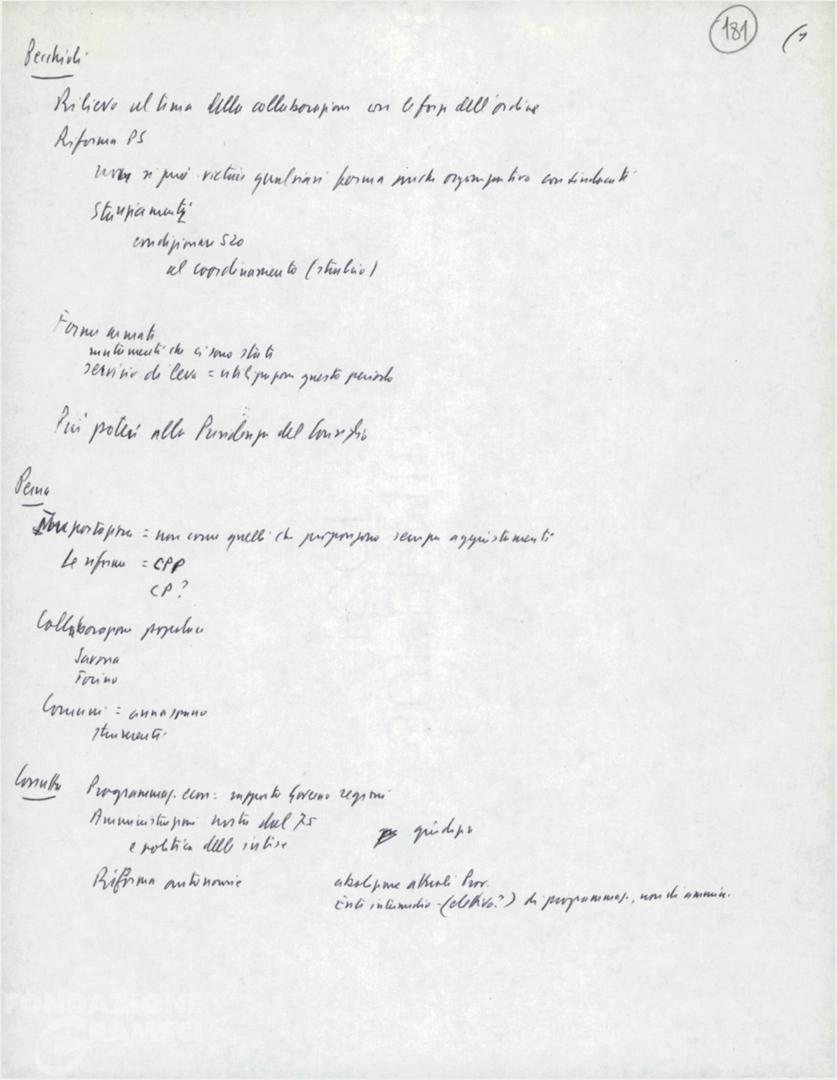 181 (1
Pecchioli
Rilievo al tema della collaborazione con le forze dell'ordine
Riforma PS
non si può vietare qualsiasi forma anche organizzativa con sindacati
Stanziamenti
condizionare 520
al coordinamento (stralcio)
Forze armate
mutamenti che ci sono stati
servizio di leva = utilizzazione questo periodo
Più poteri alla Presidenza del Consiglio
Perna
Impostazione = non come quelli che propongono sempre aggiustamenti
Le riforme = CPP
CP?
Collaborazione popolare
Savona
Torino
Comuni = annaspano
strumenti
Cossutta Programmaz. econ: rapporto Governo regioni
Amministrazioni nostre dal 75 giudizio
e politica delle intese
Riforma autonomie abolizione attuali Prov.
Ente intermedio - (elettivo?) di programmaz., non di ammin.
FONDAZIONE
GRAMSCI